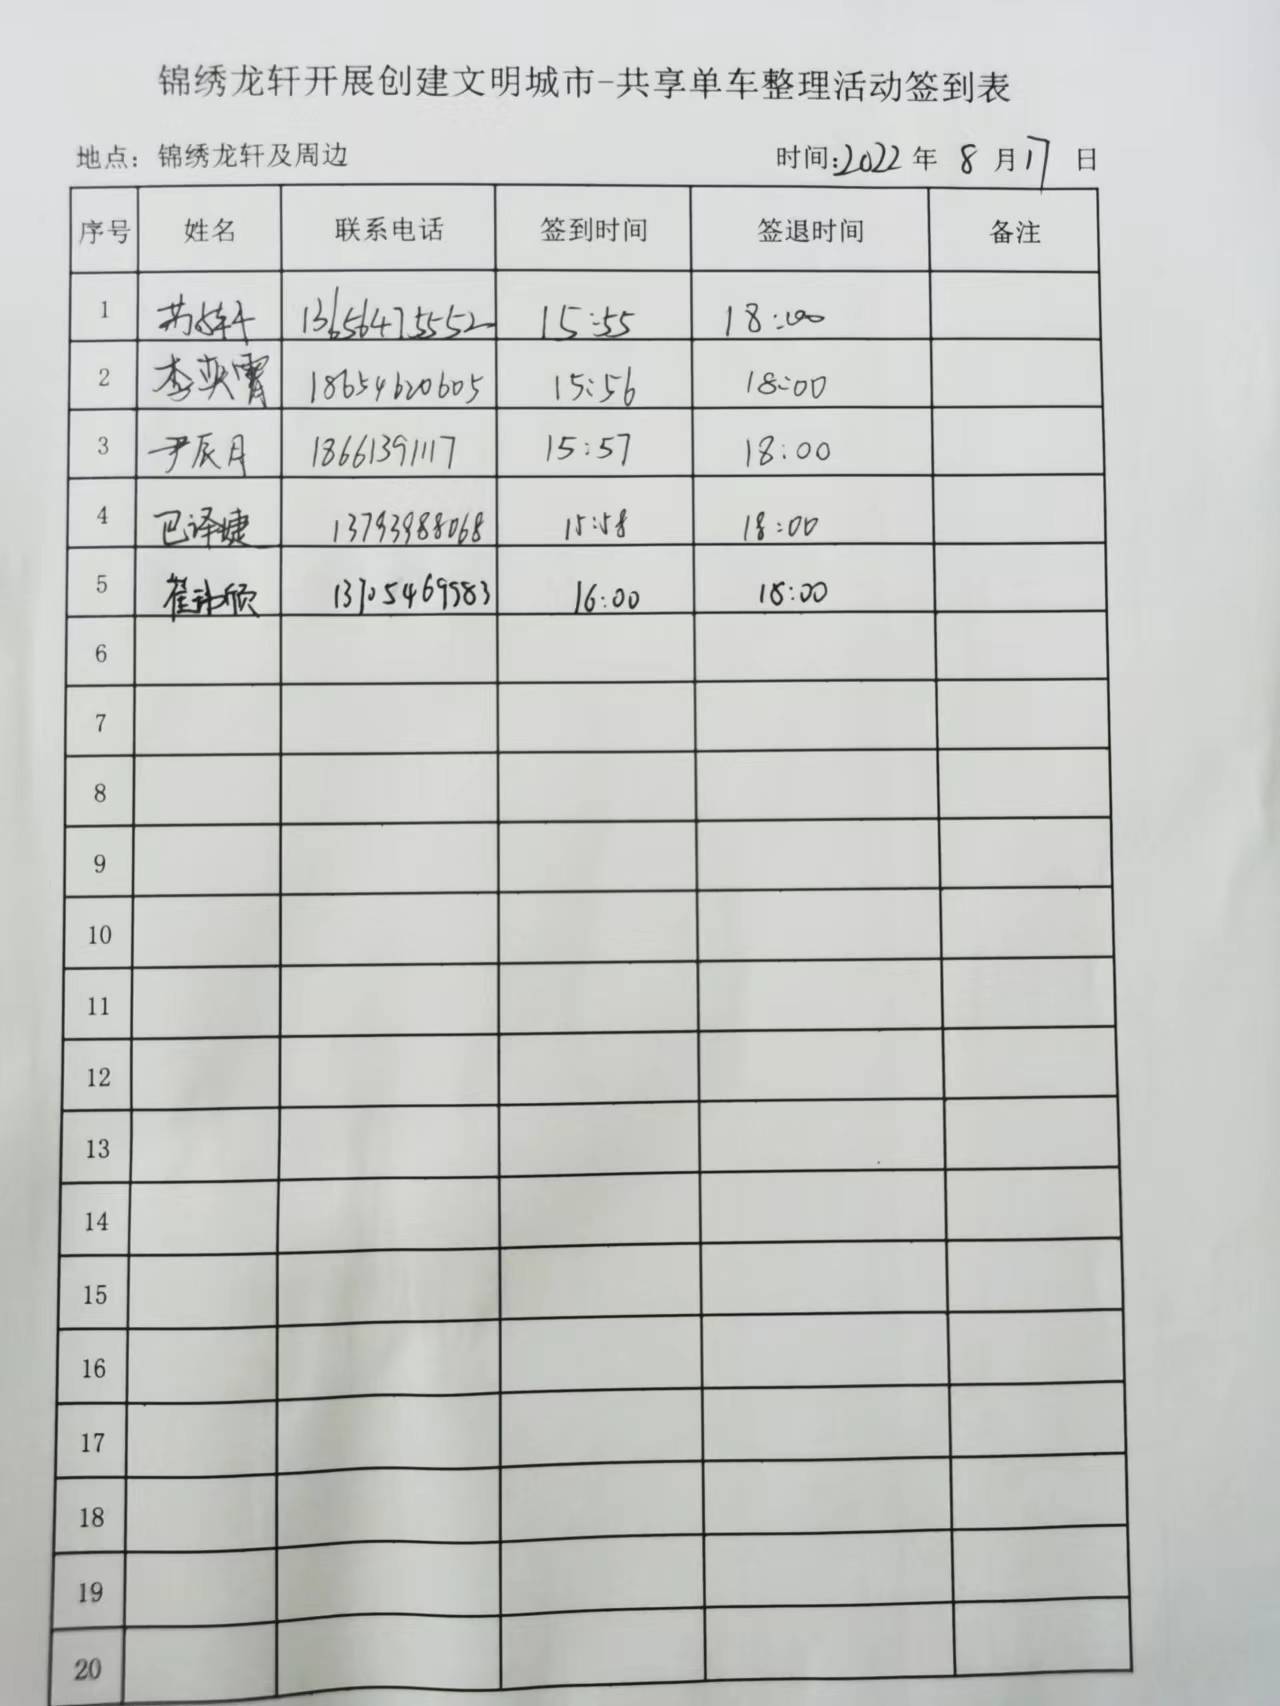 锦绣龙轩开展创建文明城市-共享单车整理活动签到表
地点：锦绣龙轩及周边 时间:2022年 8月17日
序号 姓名 联系电话 签到时间 签退时间 备注
1 13656475552 15:55 18:00
2 李奕霄 18654620605 15:56 18:00
3 尹辰月 18661391117 15:57 18:00
4 巴译婕 13793988068 15:58 18:00
5 崔 13705469583 16:00 18:00
6
7
8
9
10
11
12
13
14
15
16
17
18
19
20